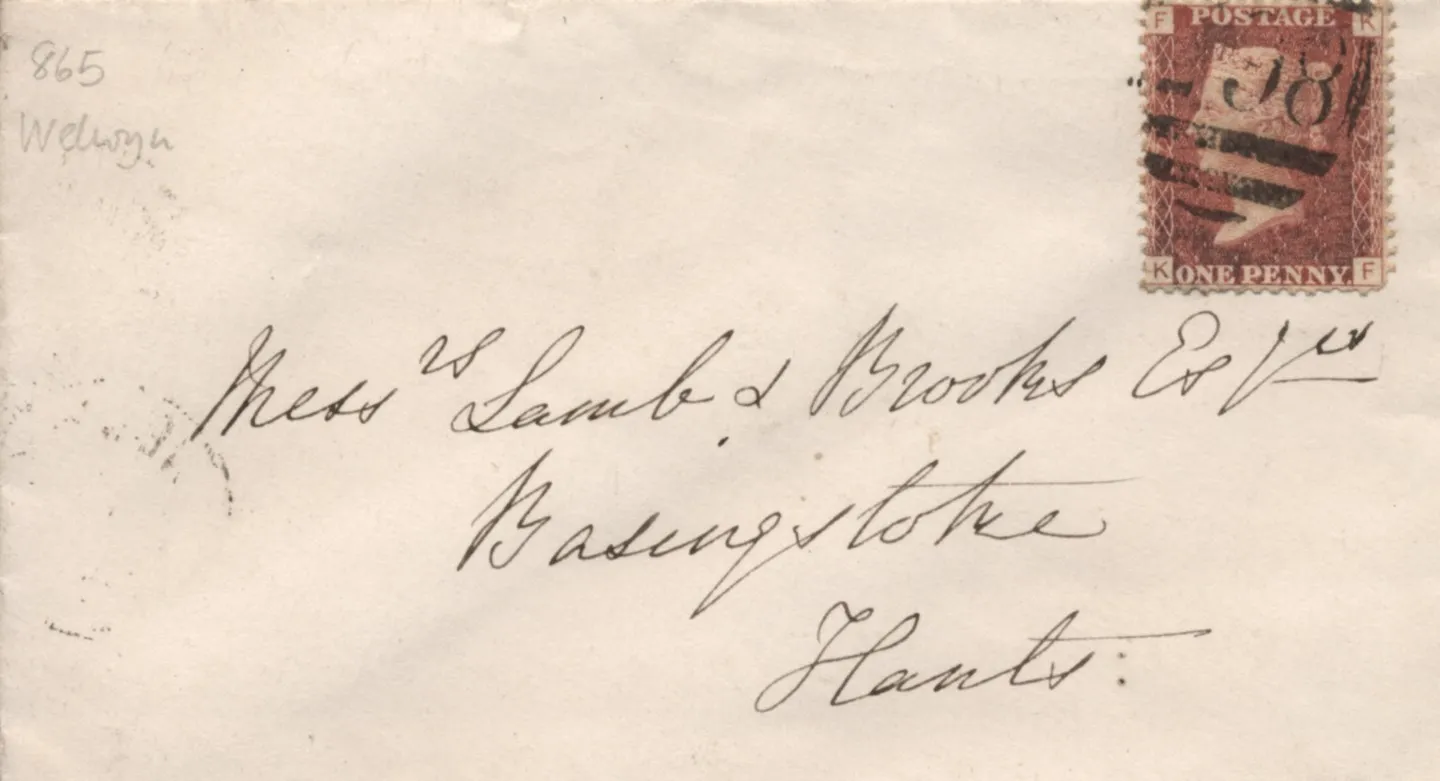 865
Welwyn
F POSTAGE K
58
K ONE PENNY. F
Mess rs Lamb & Brooks Esqrs
Basingstoke
Hants: